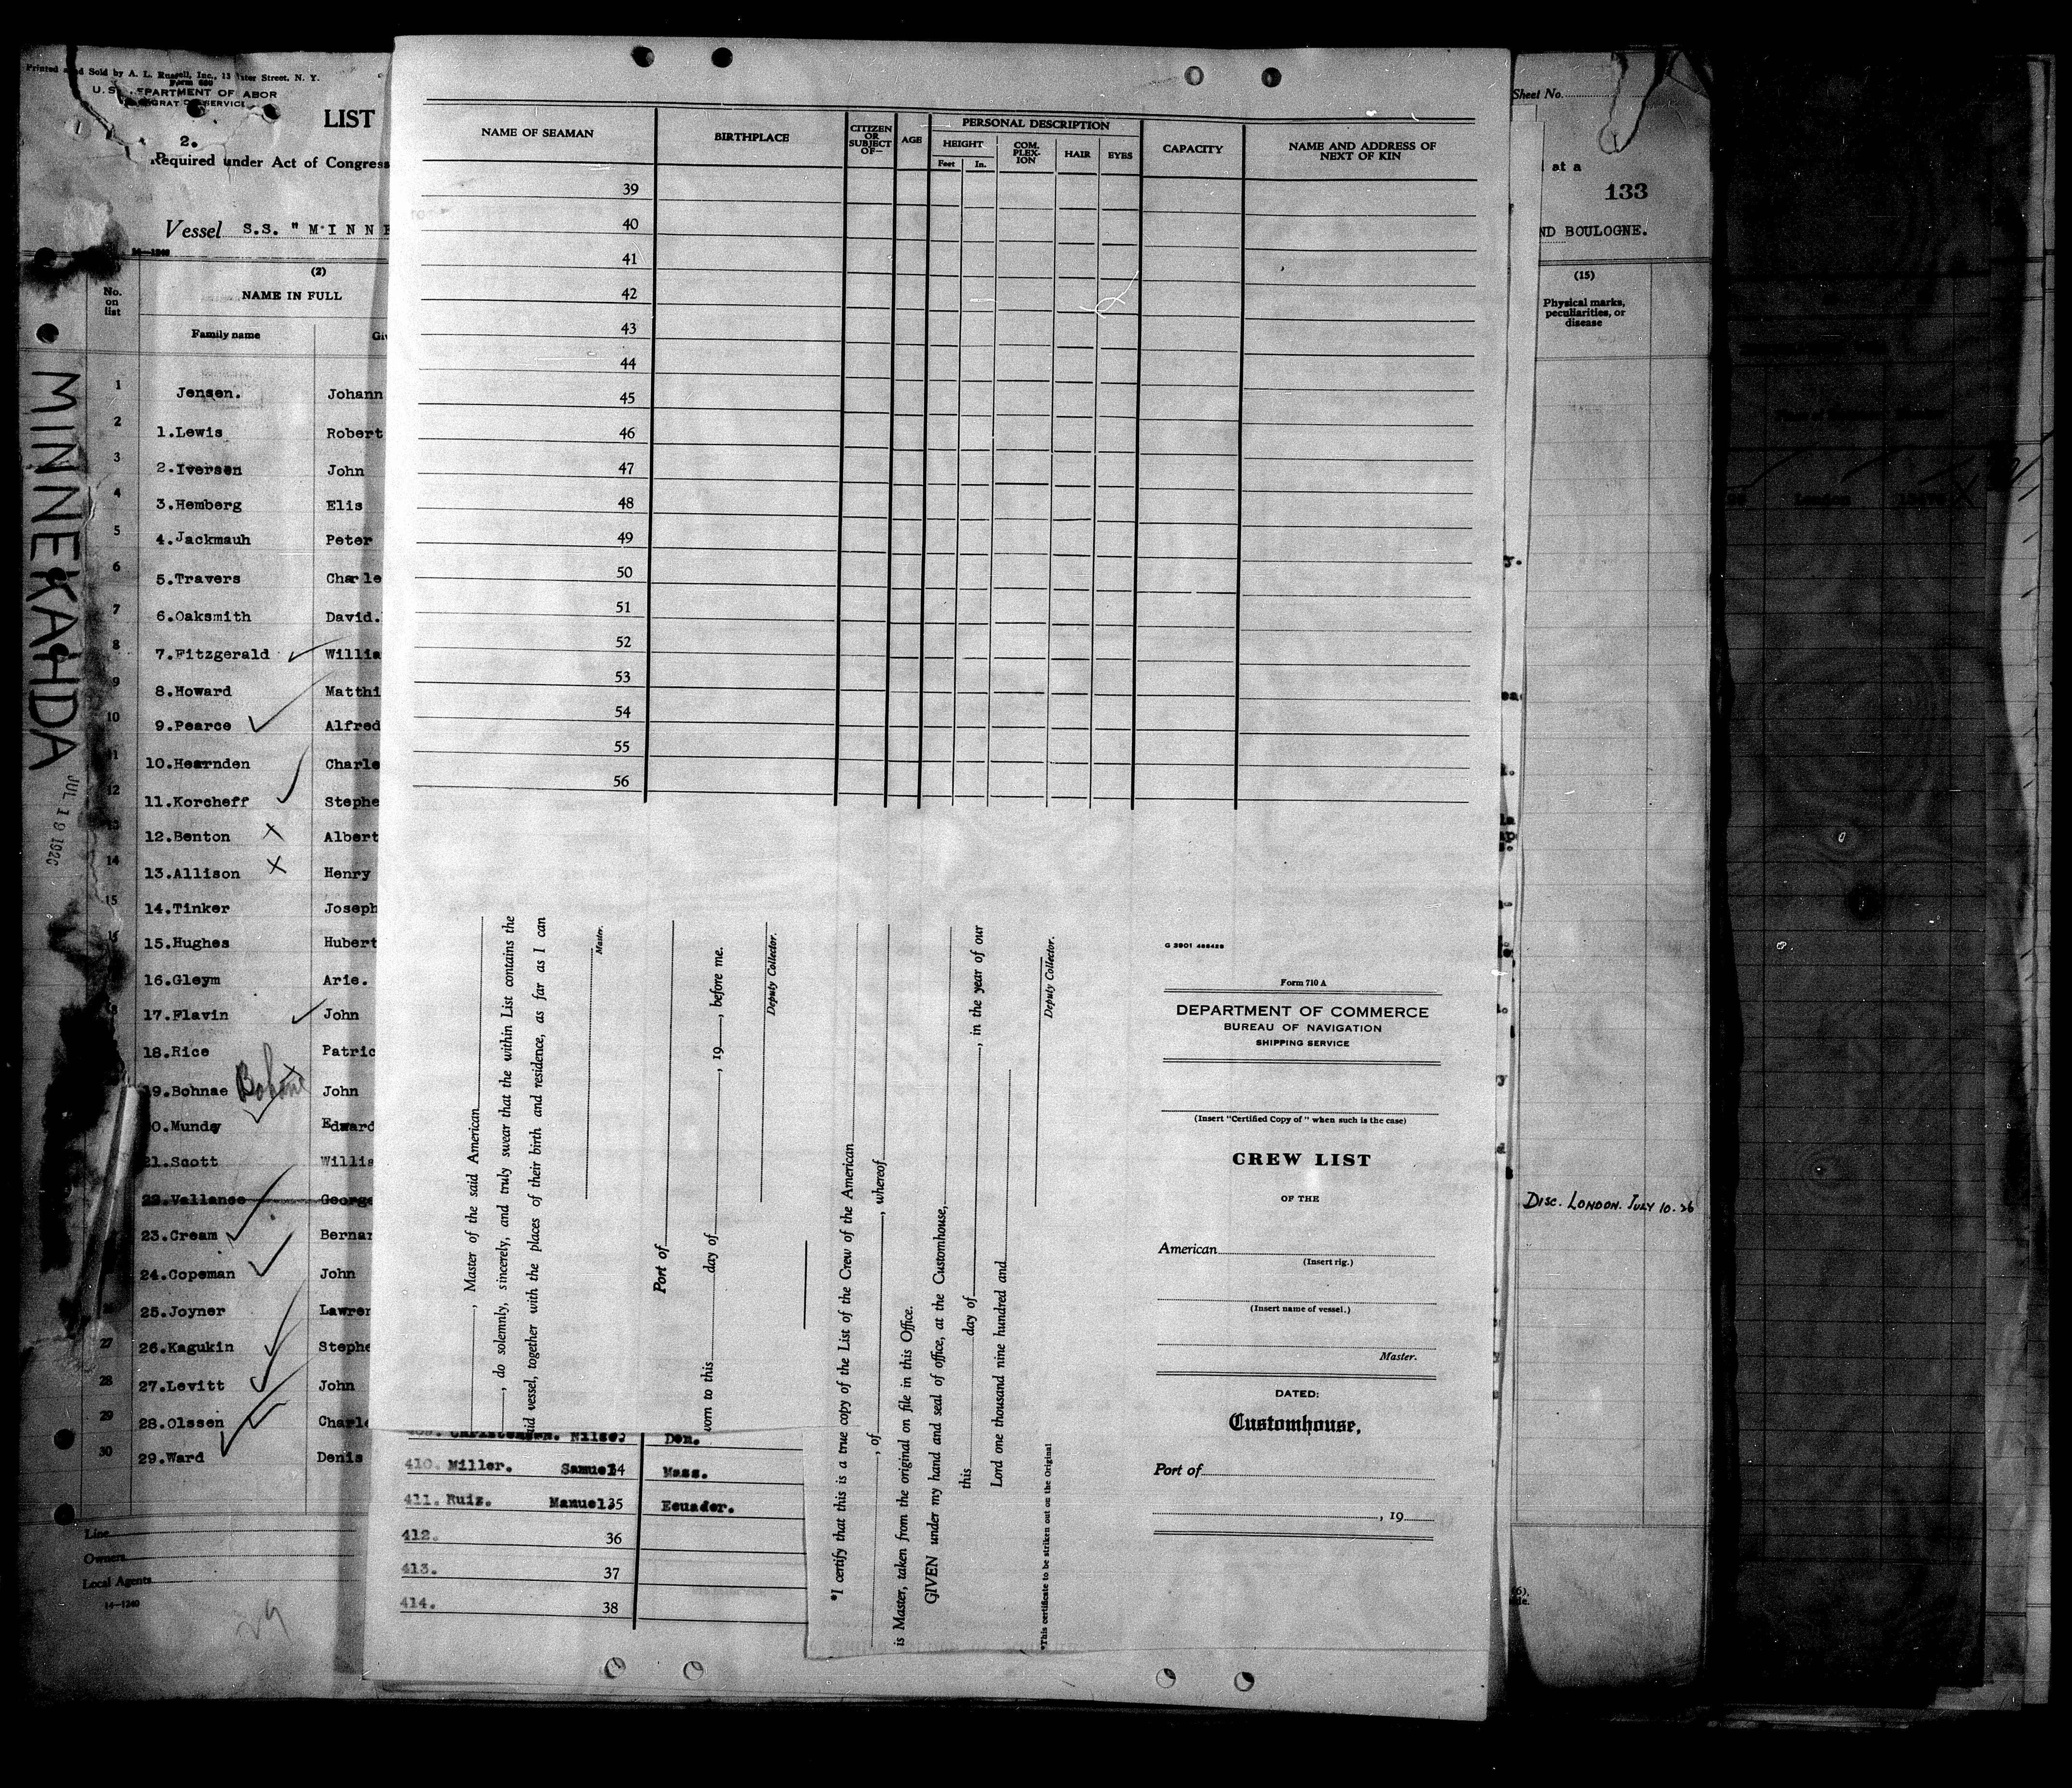 Printed and Sold by A. L. Russell, Inc., 13 Street, N. Y.
Form 680
U. S. DEPARTMENT OF LABOR
SERVICE
LIST
2.
Required under Act of Congress
Vessel S.S. "MINNE
14—1240
(2)
No. on list
NAME IN FULL
Family name
1 Jensen. Johann
2 1.Lewis Robert
3 2.Iversen John
4 3.Hemberg Elis
5 4.Jackmauh Peter
6 5.Travers Charle
7 6.Oaksmith David.
8 7.Fitzgerald Willia
9 8.Howard Matthi
10 9.Pearce Alfred
11 10.Hearnden Charle
12 11.Korcheff Stephe
13 12.Benton Albert
14 13.Allison Henry
15 14.Tinker Joseph
16 15.Hughes Hubert
16.Gleym Arie.
17.Flavin John
18.Rice Patric
19.Bohnae Bohane John
0.Mundy Edward
21.Scott Willia
22.Vallance George
23.Cream Bernar
24.Copeman John
25.Joyner Lawren
27 26.Kagukin Stephe
28 27.Levitt John
29 28.Olssen Charle
30 29.Ward Denis
Line
Owners
Local Agents
14—1240
29
MINNEKAHDA
JUL 19 1926
NAME OF SEAMAN
BIRTHPLACE
CITIZEN OR SUBJECT OF—
AGE
PERSONAL DESCRIPTION
HEIGHT
Feet In.
COMPLEXION
HAIR
EYES
CAPACITY
NAME AND ADDRESS OF NEXT OF KIN
39
40
41
42
43
44
45
46
47
48
49
50
51
52
53
54
55
56
, Master of the said American
, do solemnly, sincerely, and truly swear that the within List contains the
aid vessel, together with the places of their birth and residence, as far as I can
Master.
Port of
worn to this day of , 19 , before me.
Deputy Collector.
*I certify that this is a true copy of the List of the Crew of the American
, of , whereof
is Master, taken from the original on file in this Office.
GIVEN under my hand and seal of office, at the Customhouse,
this day of , in the year of our
Lord one thousand nine hundred and
Deputy Collector.
*This certificate to be striken out on the Original
G 3901 466429
Form 710 A
DEPARTMENT OF COMMERCE
BUREAU OF NAVIGATION
SHIPPING SERVICE
(Insert "Certified Copy of" when such is the case)
CREW LIST
OF THE
American
(Insert rig.)
(Insert name of vessel.)
Master.
DATED:
Customhouse,
Port of
, 19
Den.
410. Miller. Samuel 34 Mass.
411. Ruiz. Manuel 35 Ecuador.
412. 36
413. 37
414. 38
Sheet No.
at a
133
ND BOULOGNE.
(15)
Physical marks, peculiarities, or disease
DISC. LONDON. JULY 10. 26
London